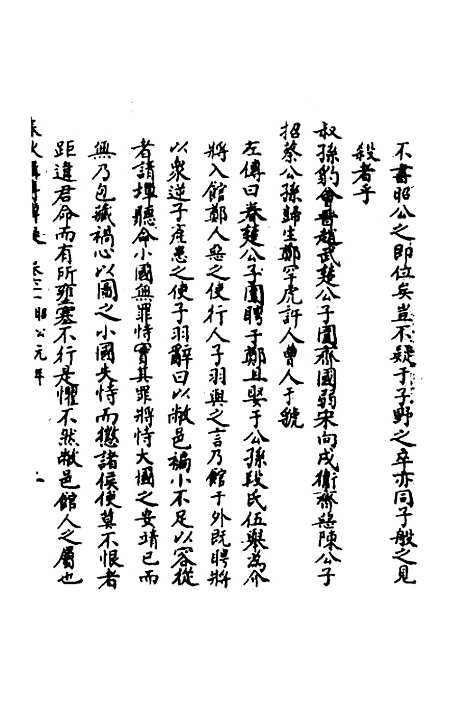 不書昭公之即位矣豈不疑于子野之卒亦同子般之見
殺者乎
叔孫豹會晋趙武楚公子圍齊國弱宋向戌衛齊惡陳公子
招蔡公孫歸生鄭罕虎許人曹人于虢
左傳曰春楚公子圍聘于鄭且娶于公孫段氏伍舉為介
將入館鄭人惡之使行人子羽與之言乃館于外既聘將
以衆逆子産患之使子羽辭曰以敝邑褊小不足以容從
者請墠聽命小國無罪恃實其罪將恃大國之安靖已而
無乃包藏禍心以圖之小國失恃而懲諸侯使莫不恨者
距違君命而有所壅塞不行是懼不然敝邑館人之屬也
昭公元年